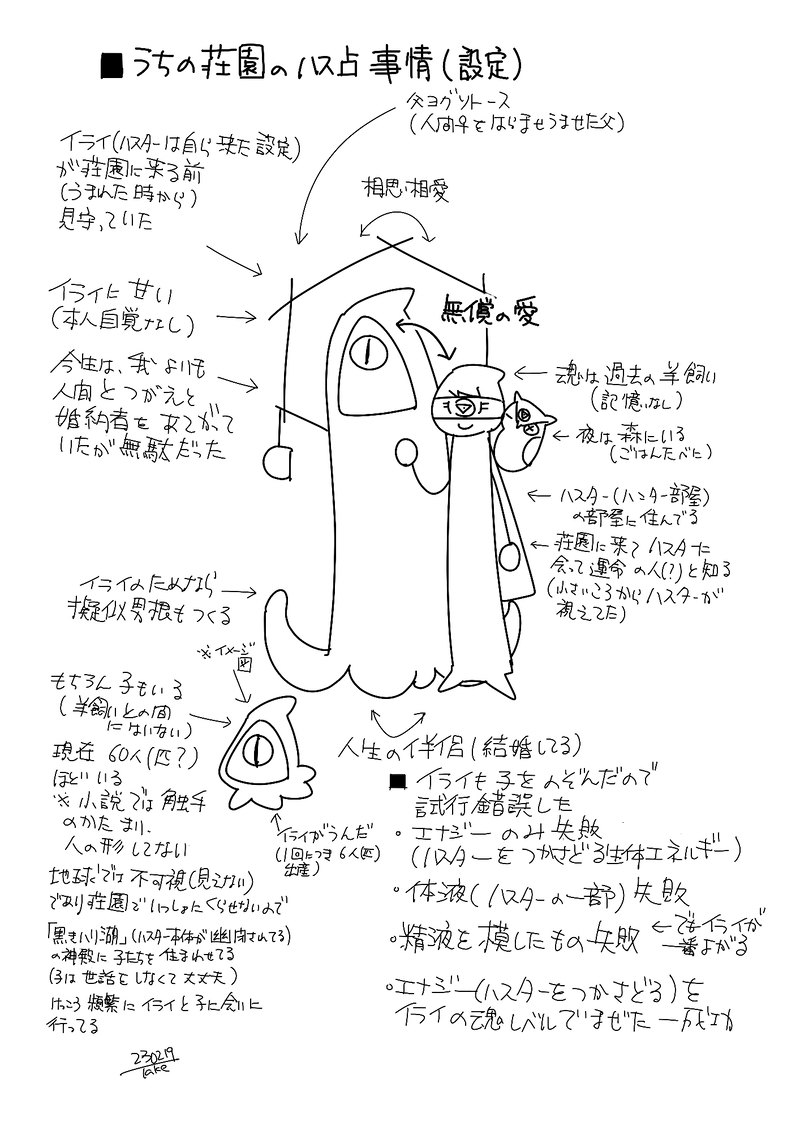 ■うちの荘園のハス占事情(設定)
父ヨグソトース
(人間♀をはらませうませた父)
イライ(ハスターは自ら来た設定)
が荘園に来る前
(うまれた時から)
見守っていた
相思相愛
イライに甘い
(本人自覚なし)
無償の愛
今生は、我よりも
人間とつがえと
婚約者をあてがって
いたが無駄だった
魂は過去の羊飼い
(記憶なし)
夜は森にいる
(ごはんたべに)
ハスター(ハンター部屋)
の部屋に住んでる
荘園に来てハスターに
会って運命の人(?)と知る
(小さいころからハスターが
視えてた)
イライのためなら
擬似男根もつくる
※イメージ
図
もちろん子もいる
(羊飼いとの間
にはいない)
現在 60人(匹?)
ほどいる
※小説では触手
のかたまり、
人の形してない
イライがうんだ
(1回につき6人(匹)
出産)
地球では不可視(見えない)
であり荘園でいっしょにくらせないので
「黒きハリ湖」(ハスター本体が幽閉されてる)
の神殿に子たちを住まわせてる
(子は世話をしなくて大丈夫)
けっこう頻繁にイライと子に会いに
行ってる
人生の伴侶(結婚してる)
■イライも子をのぞんだので
試行錯誤した
・エナジーのみ失敗
(ハスターをつかさどる生体エネルギー)
・体液(ハスターの一部)失敗
・精液を模したもの失敗 ←でもイライが
一番よがる
・エナジー(ハスターをつかさどる)を
イライの魂レベルでまぜた―成功
230219
Take